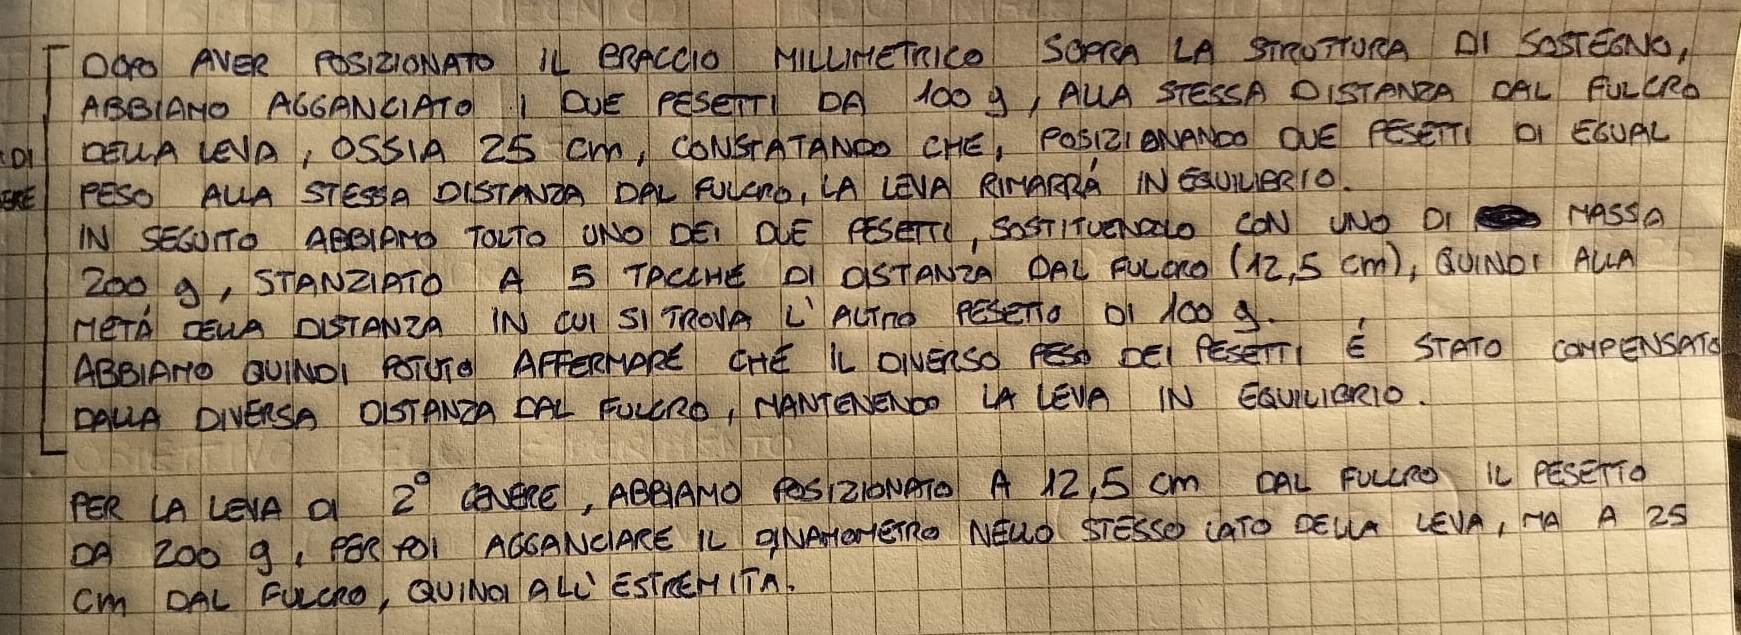 DOPO AVER POSIZIONATO IL BRACCIO MILLIMETRICO SOPRA LA STRUTTURA DI SOSTEGNO,
ABBIAMO AGGANCIATO I DUE PESETTI DA 100 g, ALLA STESSA DISTANZA DAL FULCRO
DI DELLA LEVA, OSSIA 25 cm, CONSTATANDO CHE, POSIZIONANDO DUE PESETTI DI EGUAL
ERE PESO ALLA STESSA DISTANZA DAL FULCRO, LA LEVA RIMARRÁ IN EQUILIBRIO.
IN SEGUITO ABBIAMO TOLTO UNO DEI DUE PESETTI, SOSTITUENDOLO CON UNO DI MASSA
200 g, STANZIATO A 5 TACCHE DI DISTANZA DAL FULCRO (12,5 cm), QUINDI ALLA
METÁ DELLA DISTANZA IN CUI SI TROVA L'ALTRO PESETTO DI 100 g.
ABBIAMO QUINDI POTUTO AFFERMARE CHE IL DIVERSO PESO DEI PESETTI É STATO COMPENSATO
DALLA DIVERSA DISTANZA DAL FULCRO, MANTENENDO LA LEVA IN EQUILIBRIO.
PER LA LEVA DI 2° GENERE, ABBIAMO POSIZIONATO A 12,5 cm DAL FULCRO IL PESETTO
DA 200 g, PER POI AGGANCIARE IL DINAMOMETRO NELLO STESSO LATO DELLA LEVA, MA A 25
cm DAL FULCRO, QUINDI ALL'ESTREMITA.